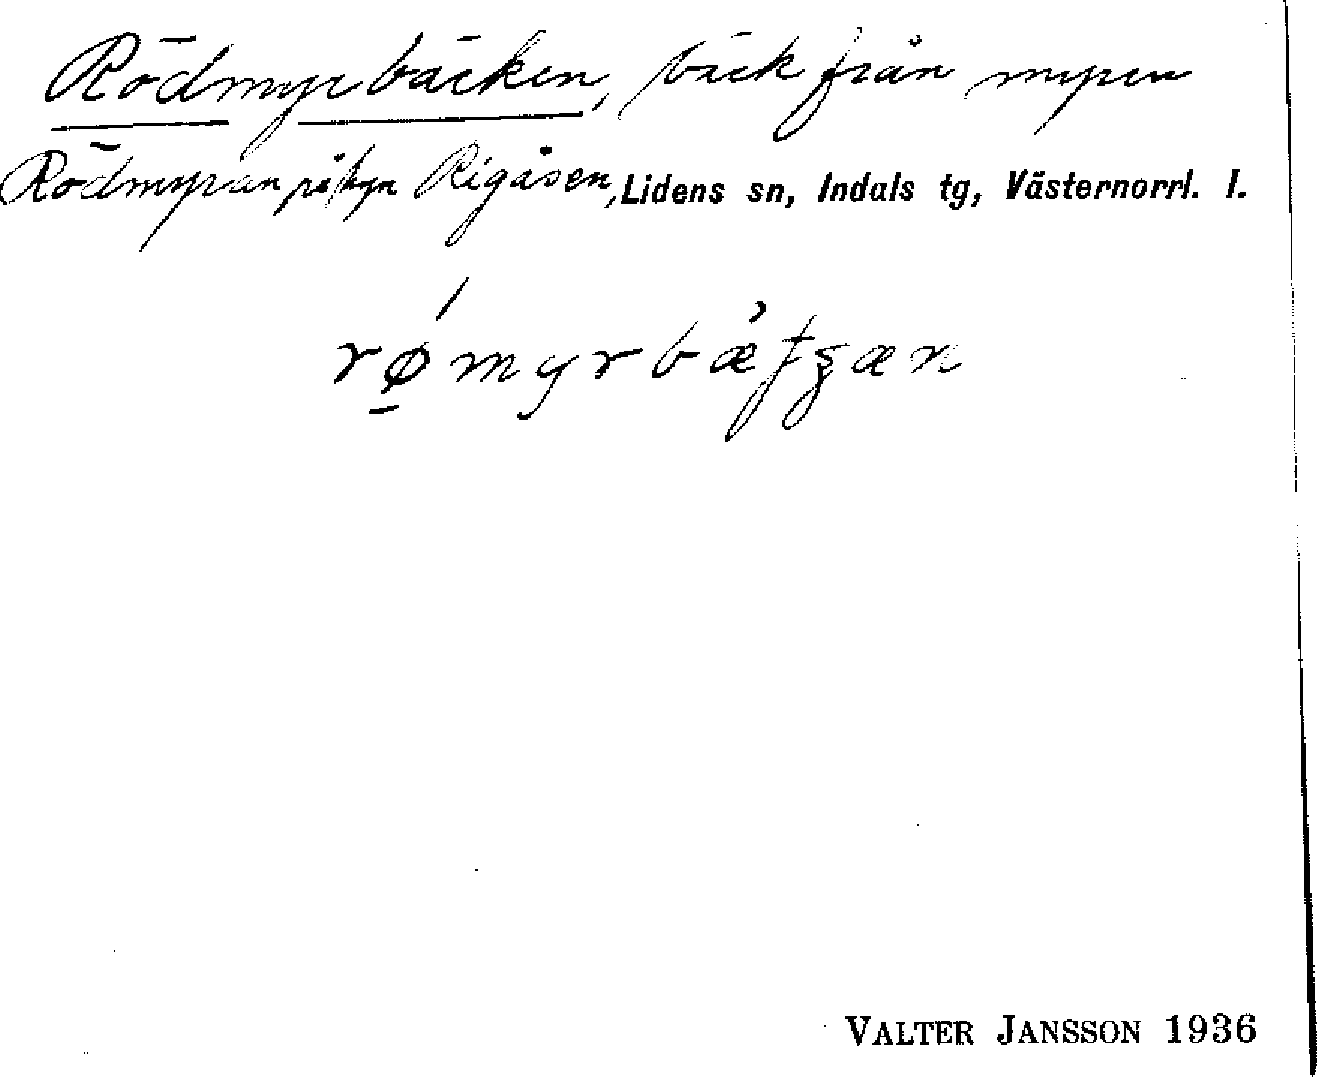 Rödmyrbäcken, bäck från myren
Rödmyran på byn Rigåsen, Lidens sn, Indals tg, Västernorrl. l.
rømyrbæ̀tʂæn
VALTER JANSSON 1936